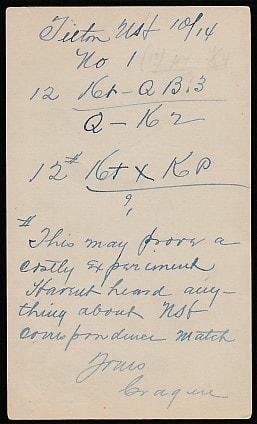 Tilton NH 10/14
No 1
12 Kt-QB.3
Q-K2
12# Kt x KP
?
# This may prove a
costly experiment
Havent heard any-
thing about NH
correspondence match
Yours